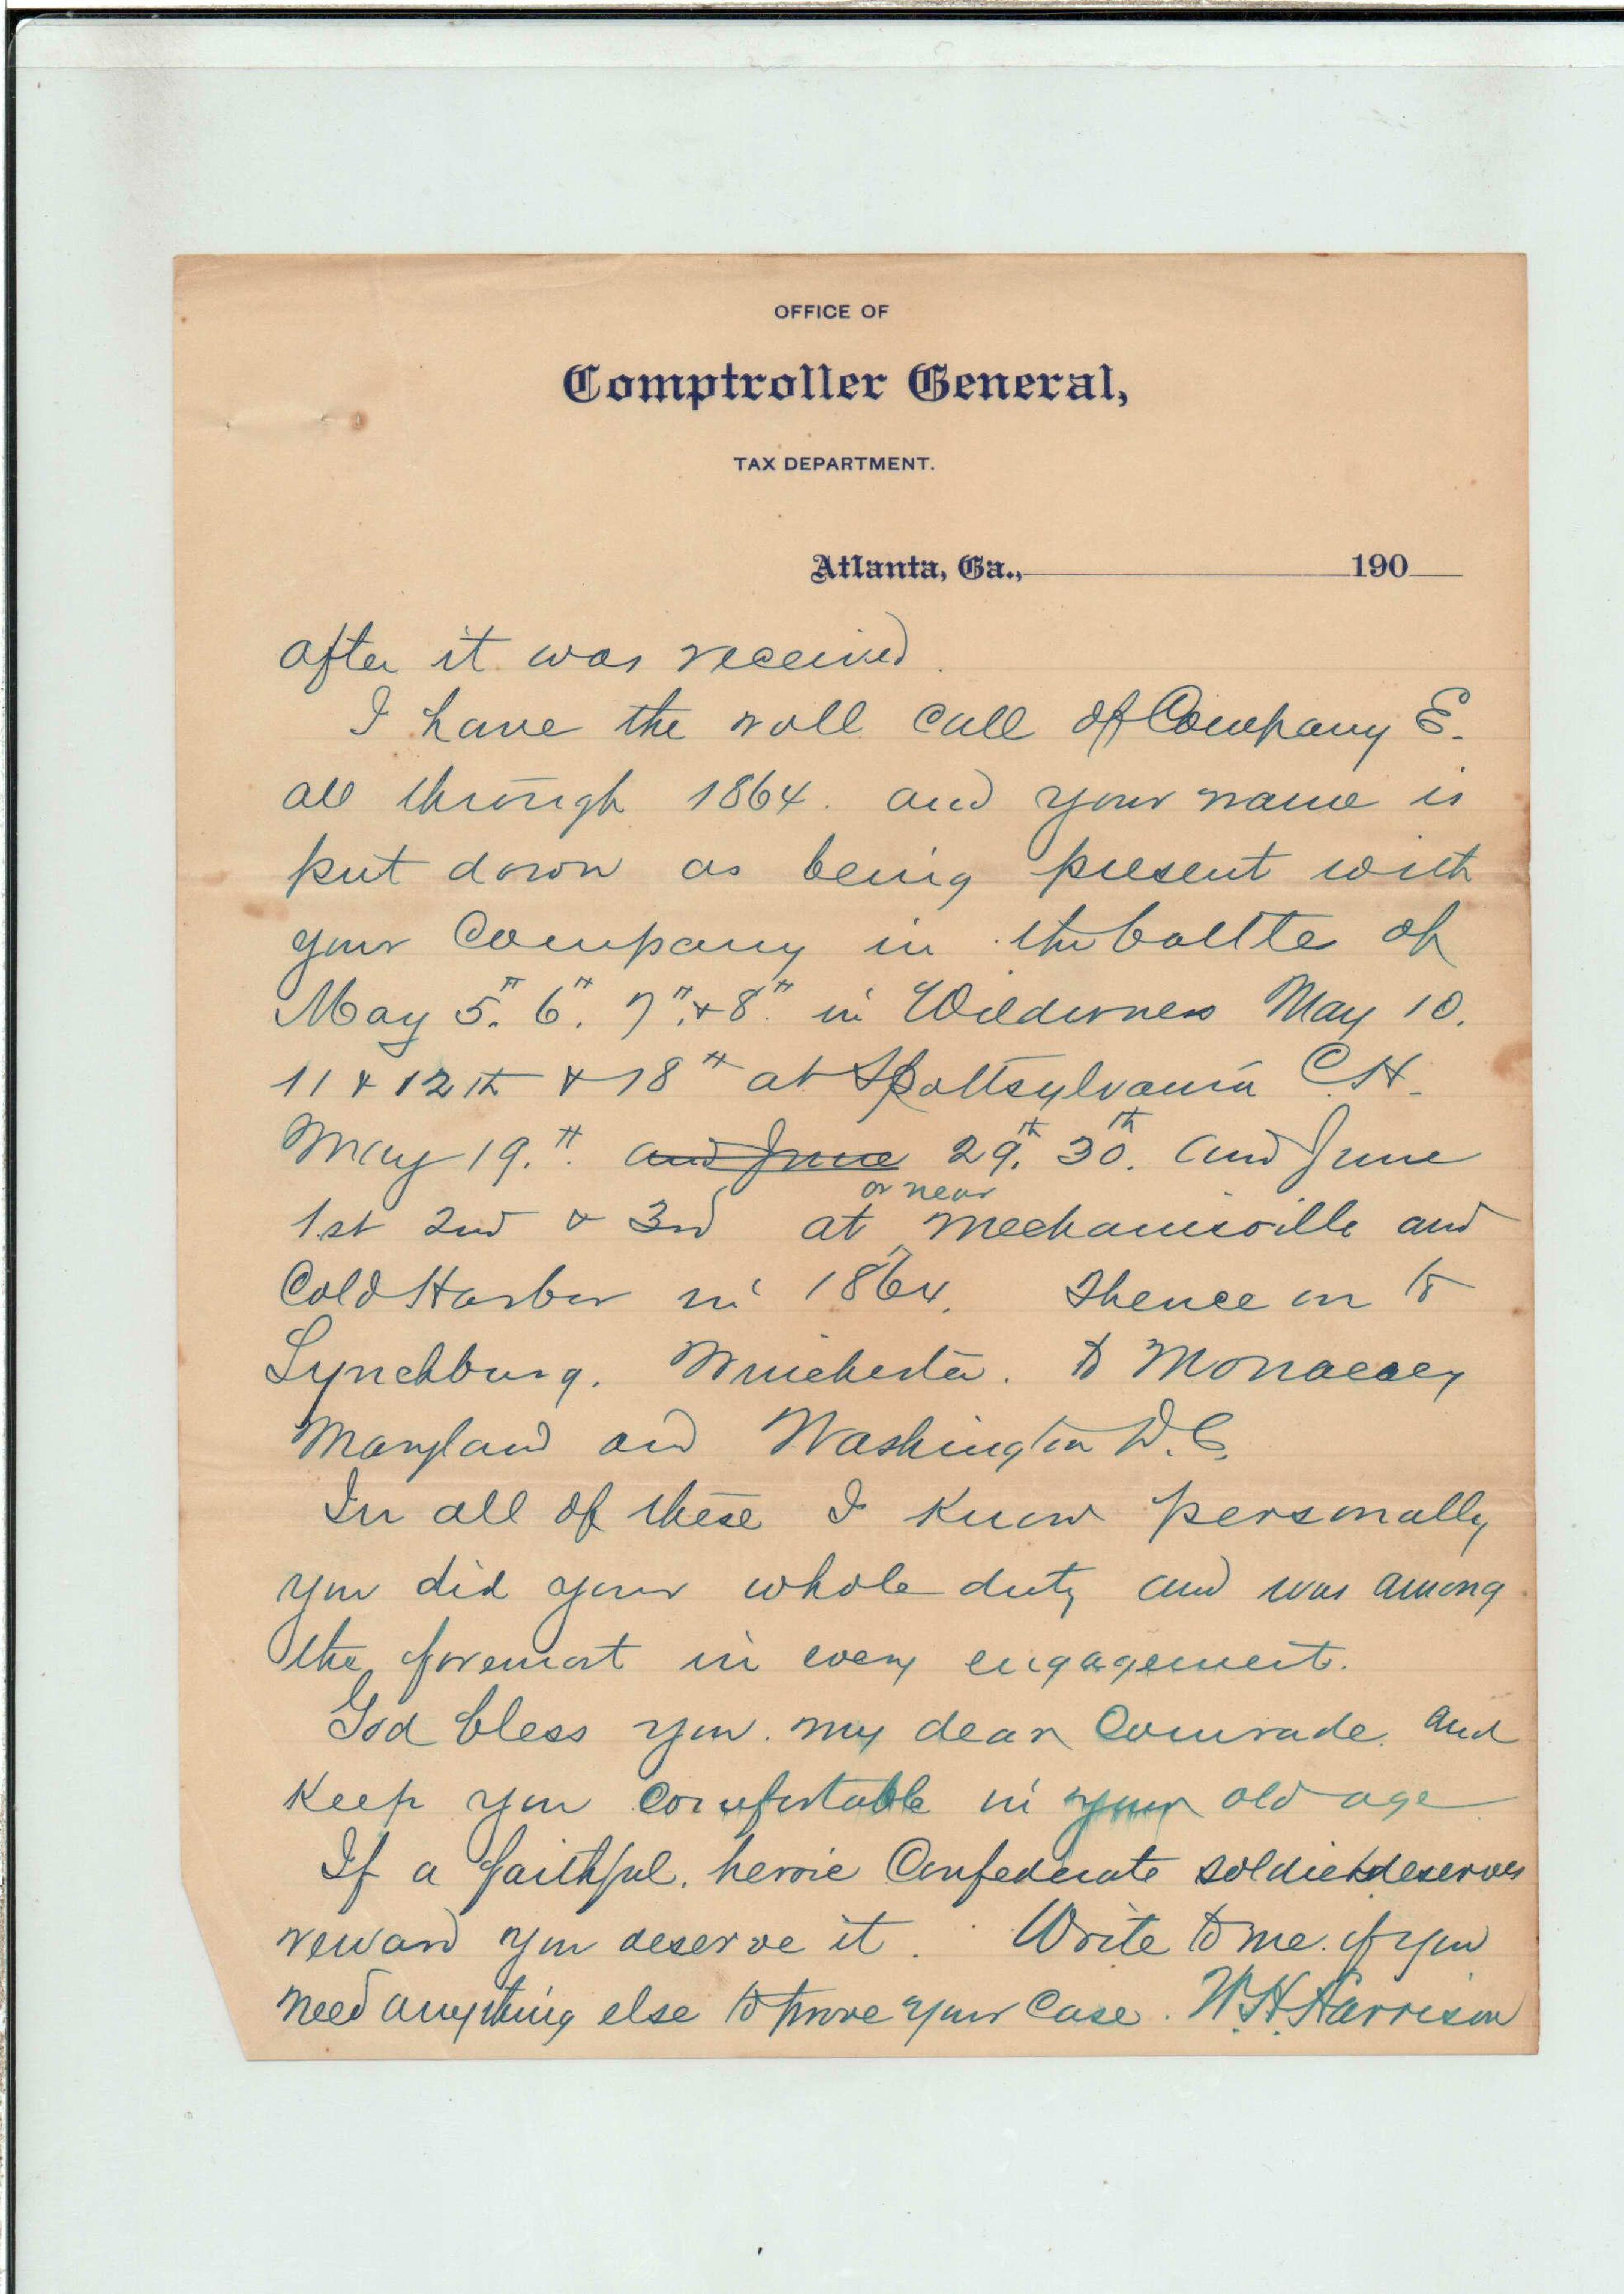 OFFICE OF
Comptroller General,
TAX DEPARTMENT.
Atlanta, Ga., 190
after it was received.
I have the roll call of Company E.
all through 1864. and your name is
put down as being present with
your Company in the battle of
May 5th. 6th. 7th. & 8th. in Wilderness May 10.
11 & 12th & 18th at Spottsylvania C.H.
May 19.th and June 29th. 30th. and June
or near
1st 2nd & 3rd at Mechanicsville and
Cold Harbor in 1864. Thence on to
Lynchburg. Winchester. to Monacacy
Maryland and Washington D.C.
In all of these I know personally
you did your whole duty and was among
the foremost in every engagement.
God bless you. my dear Comrade. and
Keep you comfortable in your old age
If a faithful. heroic Confederate soldier deserves
reward you deserve it. Write to me. if you
need anything else to prove your case. W.H. Harrison